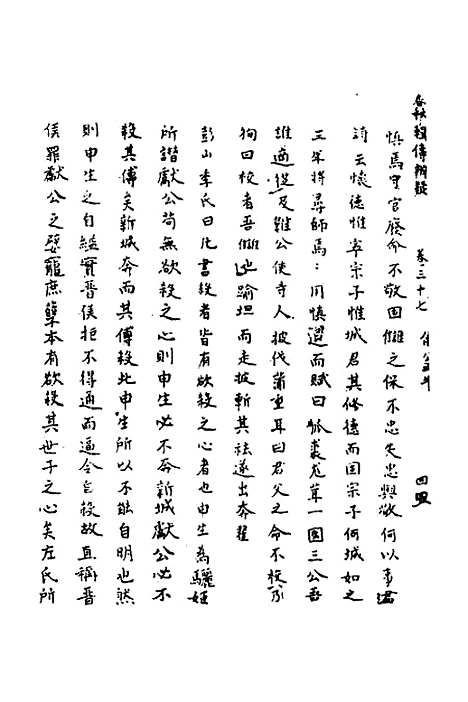 春秋輯傳辨疑 卷三十七 僖公五年 四
慎焉守官廢命不敬固讎之保不忠失忠與敬何以事君
詩云懷德惟寧宗子惟城君其修德而固宗子何城如之
三年將尋師焉焉用慎退而賦曰狐裘尨茸一國三公吾
誰適從及難公使寺人披伐蒲重耳曰君父之命不校乃
徇曰校者吾讎也踰垣而走披斬其袪遂出奔翟
彭山季氏曰凡書殺者皆有欲殺之心者也申生為驪姬
所譖獻公苟無欲殺之心則申生必不奔新城獻公必不
殺其傅矣新城奔而其傅殺此申生所以不能自明也然
則申生之自縊實晉侯拒不得通而逼令自殺故直稱晉
侯罪獻公之嬖寵庶孽本有欲殺其世子之心矣左氏所